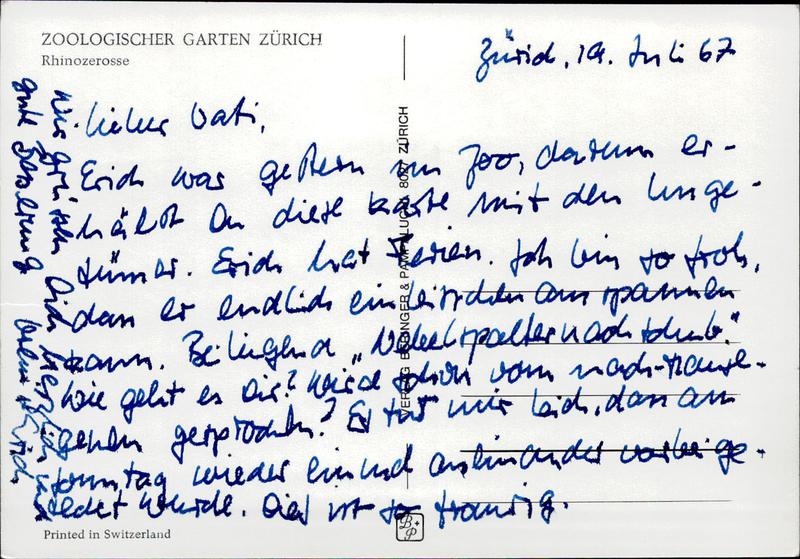 ZOOLOGISCHER GARTEN ZÜRICH
Rhinozerosse
Zürich, 19. Juli 67
Lieber Vati,
Erich war gestern im Zoo, darum er-
hälst Du diese Karte mit den Unge-
tümer. Erich hat Ferien. Ich bin so froh,
dass er endlich ein bisschen ausspannen
kann. Beiliegend „Nebelspalternachschub."
Wie geht es Dir? Wird schon vom nach-Hause-
gehen gesprochen? Es tut mir leid, dass am
Sonntag wieder einmal aneinander vorbei ge-
redet wurde. Dies ist so traurig.
Wir grüssen Dich herzlich und
gute Besserung
Erich
VERLAG BESSINGER & PAMPALUCHI 8027 ZÜRICH
B+P
Printed in Switzerland